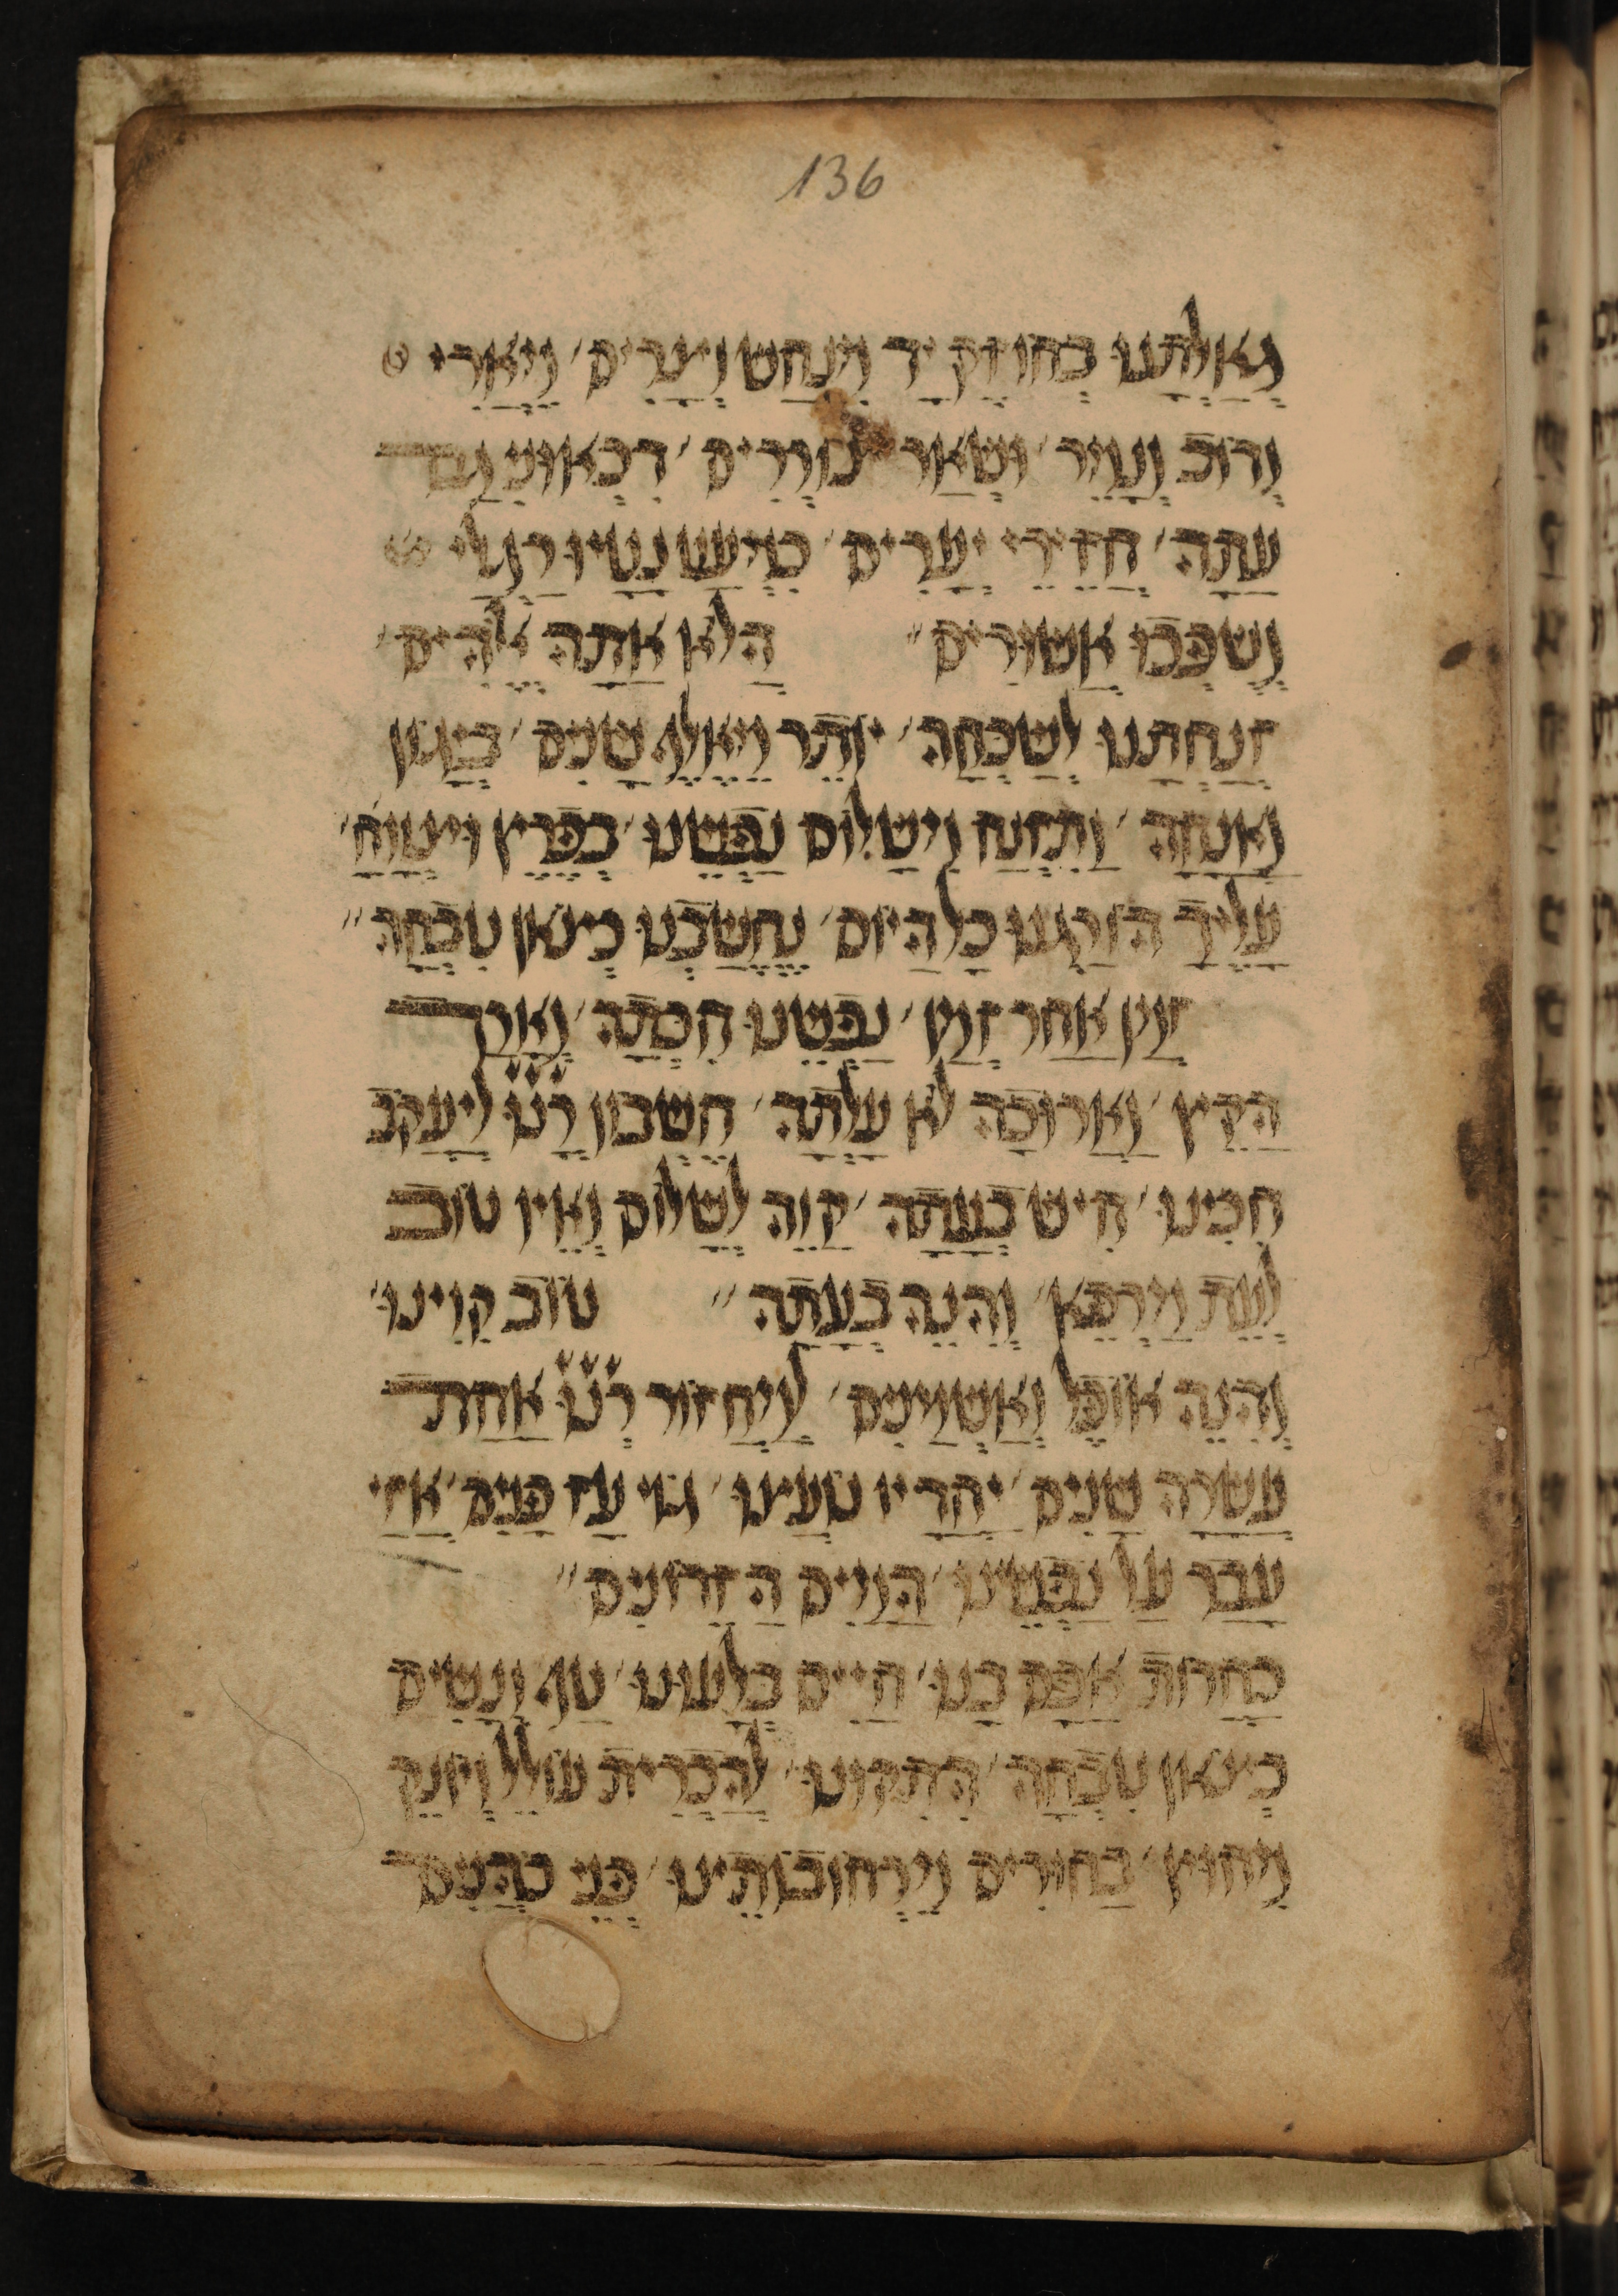 136
גאלתנו בחוזק יד מנחש ועדים׳ מארי
ודוב ועיר׳ ושאר נמרים׳ דכאונו גם
עתה׳ חזירי יערים׳ כמעט נטיו רגלי
ושפכו אשורים״ הלא אתה אלהים׳
זנחתנו לשכחה׳ יותר מאלף שנים׳ ביגון
ואנחה׳ ותזנח משלום נפשנו׳ בפרץ וצוחה׳
עליך הורגנו כל היום׳ נחשבנו כצאן טבחה״
זמן אחר זמן׳ נפשנו חכתה׳ וארך
הקץ׳ וארוכה לא עלתה׳ חשבון רנו ליעקב
חכינו׳ חיש בעתה׳ קוה לשלום ואין טוב
לעת מרפא׳ והנה בעתה״ טוב קוינו׳
והנה אופל ואשמנים׳ למחזור רנו אחת
עשרה שנים׳ יחדיו טענו׳ גוי עז פנים׳ אזי
עבר על נפשינו׳ המים הזדונים״
כחרות אפם בנו׳ חיים בלעונו׳ טף ונשים
כצאן טבחה׳ התקונו׳ להכרית עולל ויונק
מחוץ׳ בחורים מרחובותינו׳ בני כהנים